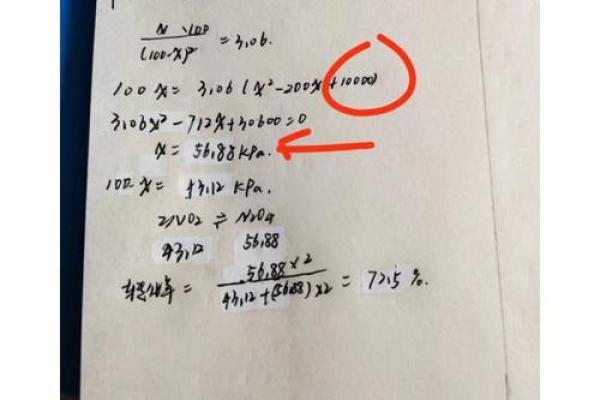 x·100
(100-x)² = 3.06.
100x = 3.06(x²-200x+10000)
3.06x²-712x+30600=0
x = 56.88 kPa.
100-x = 43.12 kPa.
2NO2 ⇌ N2O4
43.12 56.88
转化率 = 56.88×2
43.12+(56.88)×2 = 72.5 %.